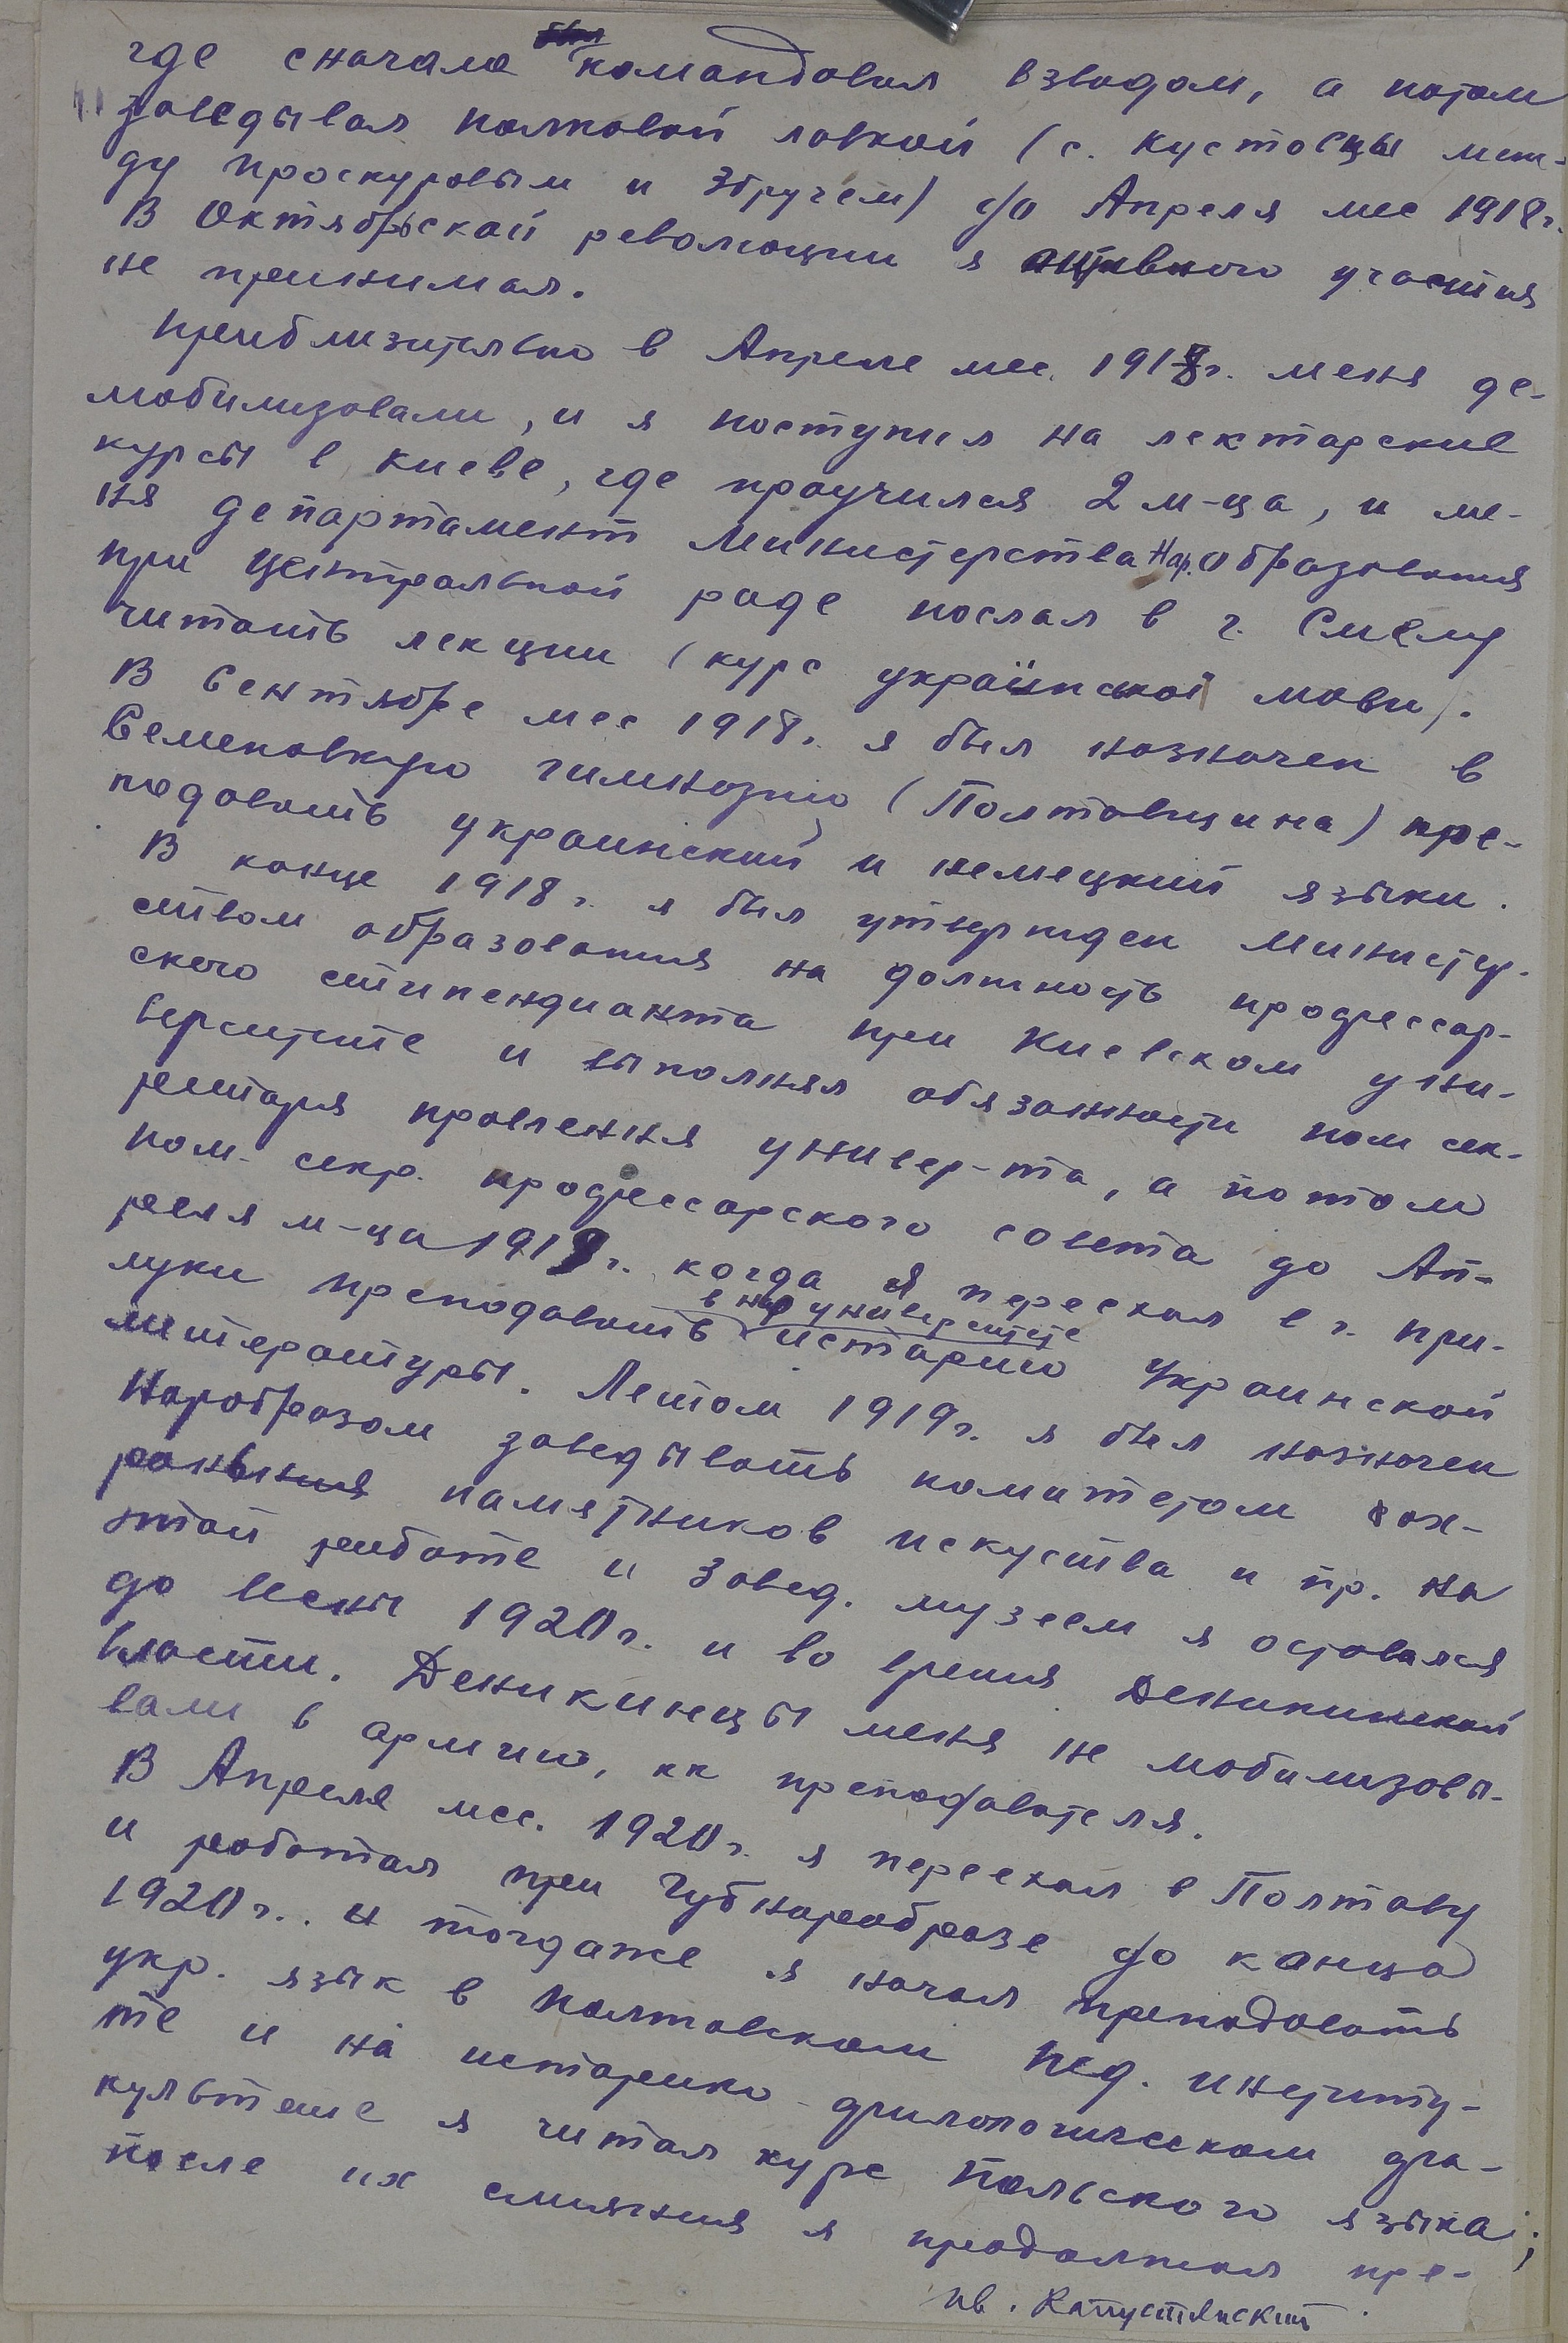 где сначала командовал взводом, а потом
заведывал полковой лавкой (с. Кустовцы меж-
ду Проскуровым и Збручем) до Апреля мес 1918 г.
В Октябрьской революции я активного участия
не принимал.
Приблизительно в Апреле мес. 1918 г. меня де-
мобилизовали, и я поступил на лекторские
курсы в Киеве, где проучился 2 м-ца, и ме-
ня департамент Министерства Нар. Образования
при Центральной раде послал в г. Смелу
читать лекции (курс української мови).
В Сентябре мес 1918 г. я был назначен в
Семеновкую гимназию (Полтавщина) пре-
подавать украинский и немецкий языки.
В конце 1918 г. я был утвержден Министер-
ством образования на должность профессор-
ского стипендианта при Киевском уни-
верситете и выполнял обязанности пом сек-
ретаря правления универ-та, а потом
пом. секр. профессорского совета до Ап-
реля м-ца 1919 г. когда я переехал в г. При-
луки преподавать в нар университете историю Украинской
литературы. Летом 1919 г. я был назначен
Наробразом заведывать комитетом сох-
ранения памятников искуства и пр. На
этой работе и завед. музеем я оставался
до весны 1920 г. и во время Деникинской
власти. Деникинцы меня не мобилизовы-
вали в армию, кк преподавателя.
В Апреле мес. 1920 г. я переехал в Полтаву
и работал при Губнаробразе до конца
1920 г. и тогдаже я начал преподавать
укр. язык в Полтавском Пед. институ-
те и на историко-филологическом фа-
культете я читал курс польского языка;
после их слияния я продолжал пре-
Ив. Капустянский